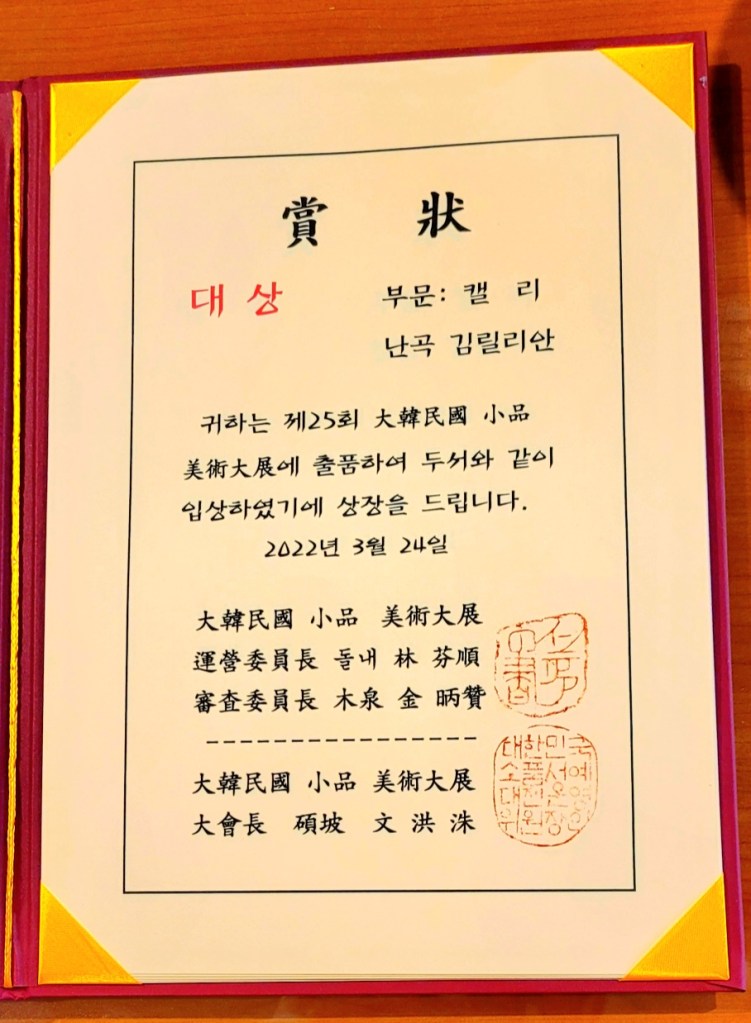 賞 狀
대 상
부문: 캘 리
난곡 김릴리안
귀하는 제25회 大韓民國 小品
美術大展에 출품하여 두서와 같이
입상하였기에 상장을 드립니다.
2022년 3월 24일
大韓民國 小品 美術大展
運營委員長 돌내 林 芬順
審査委員長 木泉 金 昞贊
大韓民國 小品 美術大展
大會長 碩坡 文 洪 洙